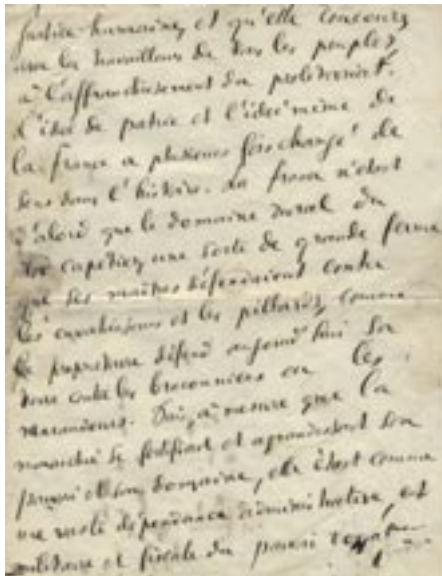 justice humaine, et qu'elle concoure
avec les travailleurs de tous les peuples
à l'affranchissement du prolétariat.
L'idée de patrie et l'idée même de
la france a plusieurs fois changé de
sens dans l'histoire. La france n'était
d'abord que le domaine rural du
roi capétien, une sorte de grande ferme
que ses maîtres défendaient contre
les envahisseurs et les pillards, comme
le propriétaire défend aujourd'hui son
contre les braconniers ou les
maraudeurs. Puis, à mesure que la
monarchie se fortifiait et agrandissait son
pouvoir et son domaine, elle était comme
une vaste dépendance administrative, et
militaire et fiscale du pouvoir